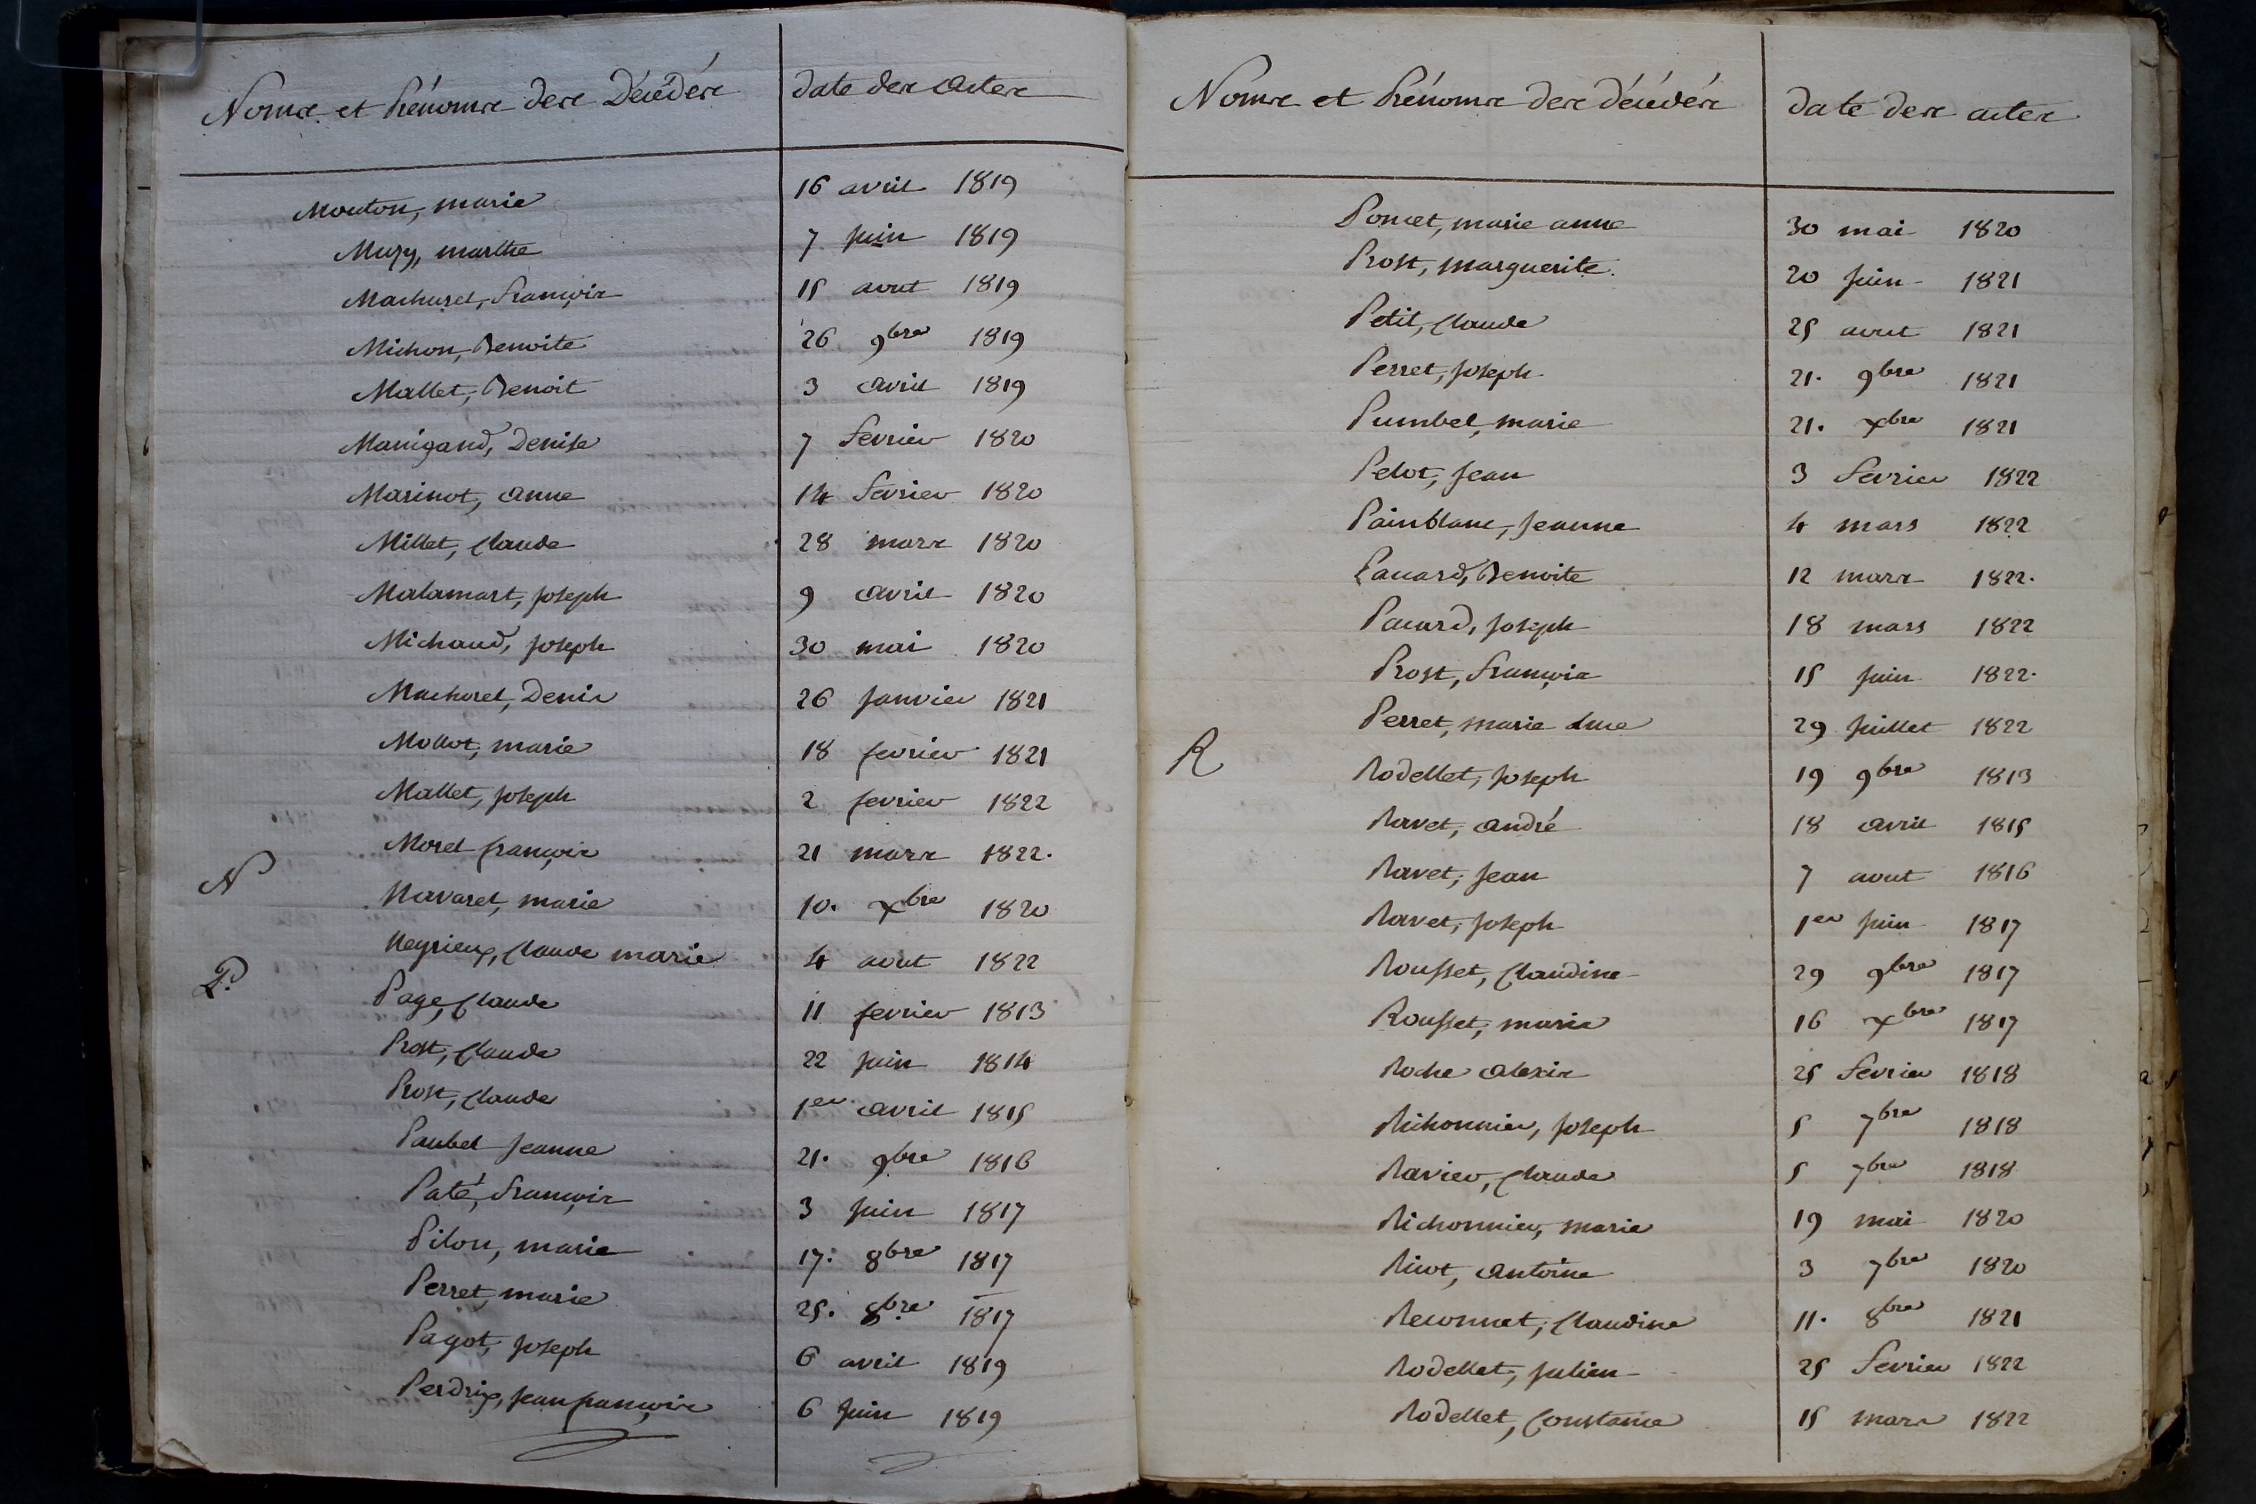 Noms et Prénoms des Décédés date des actes
Mouton, marie 16 avril 1819
Muzy, marthe 7 juin 1819
Machuret, françois 15 aout 1819
Michon, Benoite 26 9bre 1819
Mallet, Benoit 3 avril 1819
Manigand, Denise 7 fevrier 1820
Marinot, anne 14 fevrier 1820
Millet, Claude 28 mars 1820
Malamart, joseph 9 avril 1820
Michaud, joseph 30 mai 1820
Machuret, Denis 26 janvier 1821
Mollot, marie 18 fevrier 1821
Mallet, joseph 2 fevrier 1822
Moret françois 21 mars 1822.
N
Navaret, marie 10. xbre 1820
Neyrieux, Claude marie 4 aout 1822
P.
Page, Claude 11 fevrier 1813
Prost, Claude 22 juin 1814
Prost, Claude 1er avril 1815
Paubel jeanne 21. 9bre 1816
Paté, françois 3 juin 1817
Pilon, marie 17. 8bre 1817
Perret, marie 25. 8bre 1817
Pagot, joseph 6 avril 1819
Perdrix, jean françois 6 juin 1819
Noms et Prénoms des décédés date des actes
Poncet, marie anne 30 mai 1820
Prost, marguerite. 20 juin 1821
Petit, Claude 25 aout 1821
Perret, joseph 21. 9bre 1821
Pumbel, marie 21. xbre 1821
Pelot, jean 3 fevrier 1822
Painblanc, jeanne 4 mars 1822
Pacard, Benoite 12 mars 1822.
Pacard, joseph 18 mars 1822
Prost, françois 15 juin 1822.
Perret, marie 29 juillet 1822
R
Rodellet, joseph 19 9bre 1813
Ravet, andré 18 avril 1815
Ravet, jean 7 aout 1816
Ravet, joseph 1er juin 1817
Rousset, Claudine 29 9bre 1817
Rousset, marie 16 xbre 1817
Roche alexis 25 fevrier 1818
Richonnier, joseph 5 7bre 1818
Ravier, Claude 5 7bre 1818
Richonnier, marie 19 mai 1820
Ricot, antoine 3 7bre 1820
Reconnet, Claudine 11. 8bre 1821
Rodellet, julien 25 fevrier 1822
Rodellet, Constance 15 mars 1822